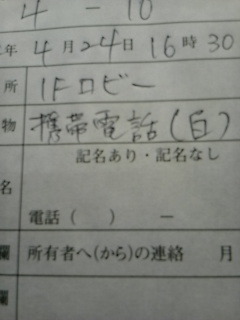 4 - 10
年 4月24日 16時30
所 1Fロビー
物 携帯電話(白)
記名あり・記名なし
名
電話( ) ー
欄 所有者へ(から)の連絡 月
欄